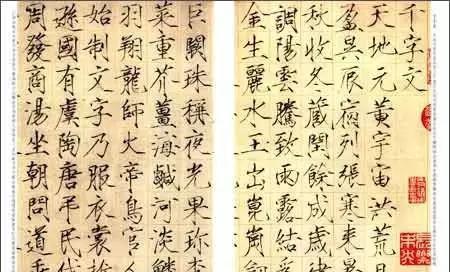 千字文
天地元黄宇宙洪荒日
盈昃辰宿列張寒来暑
秋收冬蔵閏餘成歲律
調陽雲騰致雨露結
金生麗水玉出崑崗劍
巨闕珠稱夜光果珎李
菜重芥薑海鹹河淡鱗
羽翔龍師火帝鳥官人
始制文字乃服衣裳
遜國有虞陶唐弔民伐
周發商湯坐朝問道垂